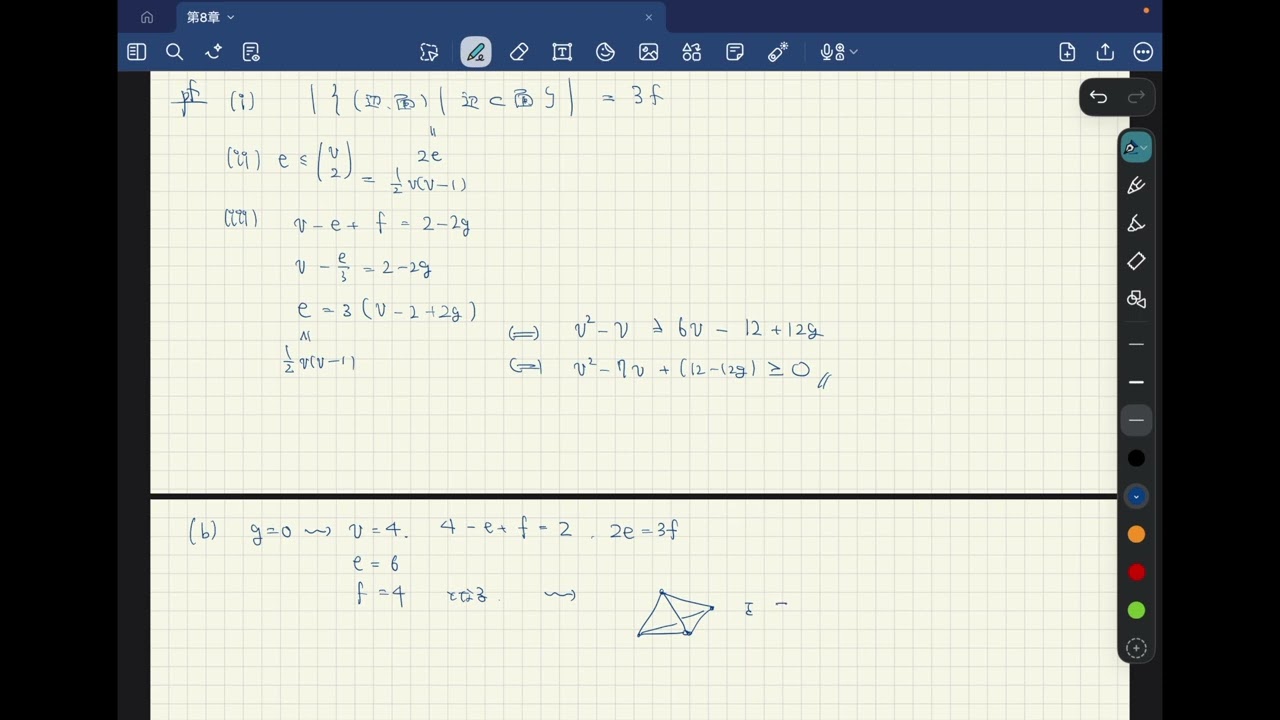 第8章
pf (i) |{(辺、面) | 辺 ⊂ 面}| = 3f
॥
2e
(ii) e ≤ (v 2) = 1/2 v(v-1)
(iii) v - e + f = 2-2g
v - e/3 = 2-2g
e = 3(v-2+2g)
≤
1/2 v(v-1)
⇔ v² - v ≥ 6v - 12 + 12g
⇔ v² - 7v + (12-12g) ≥ 0 //
(b) g=0 ⇝ v=4. 4 - e + f = 2 . 2e=3f
e = 6
f = 4 となる. ⇝